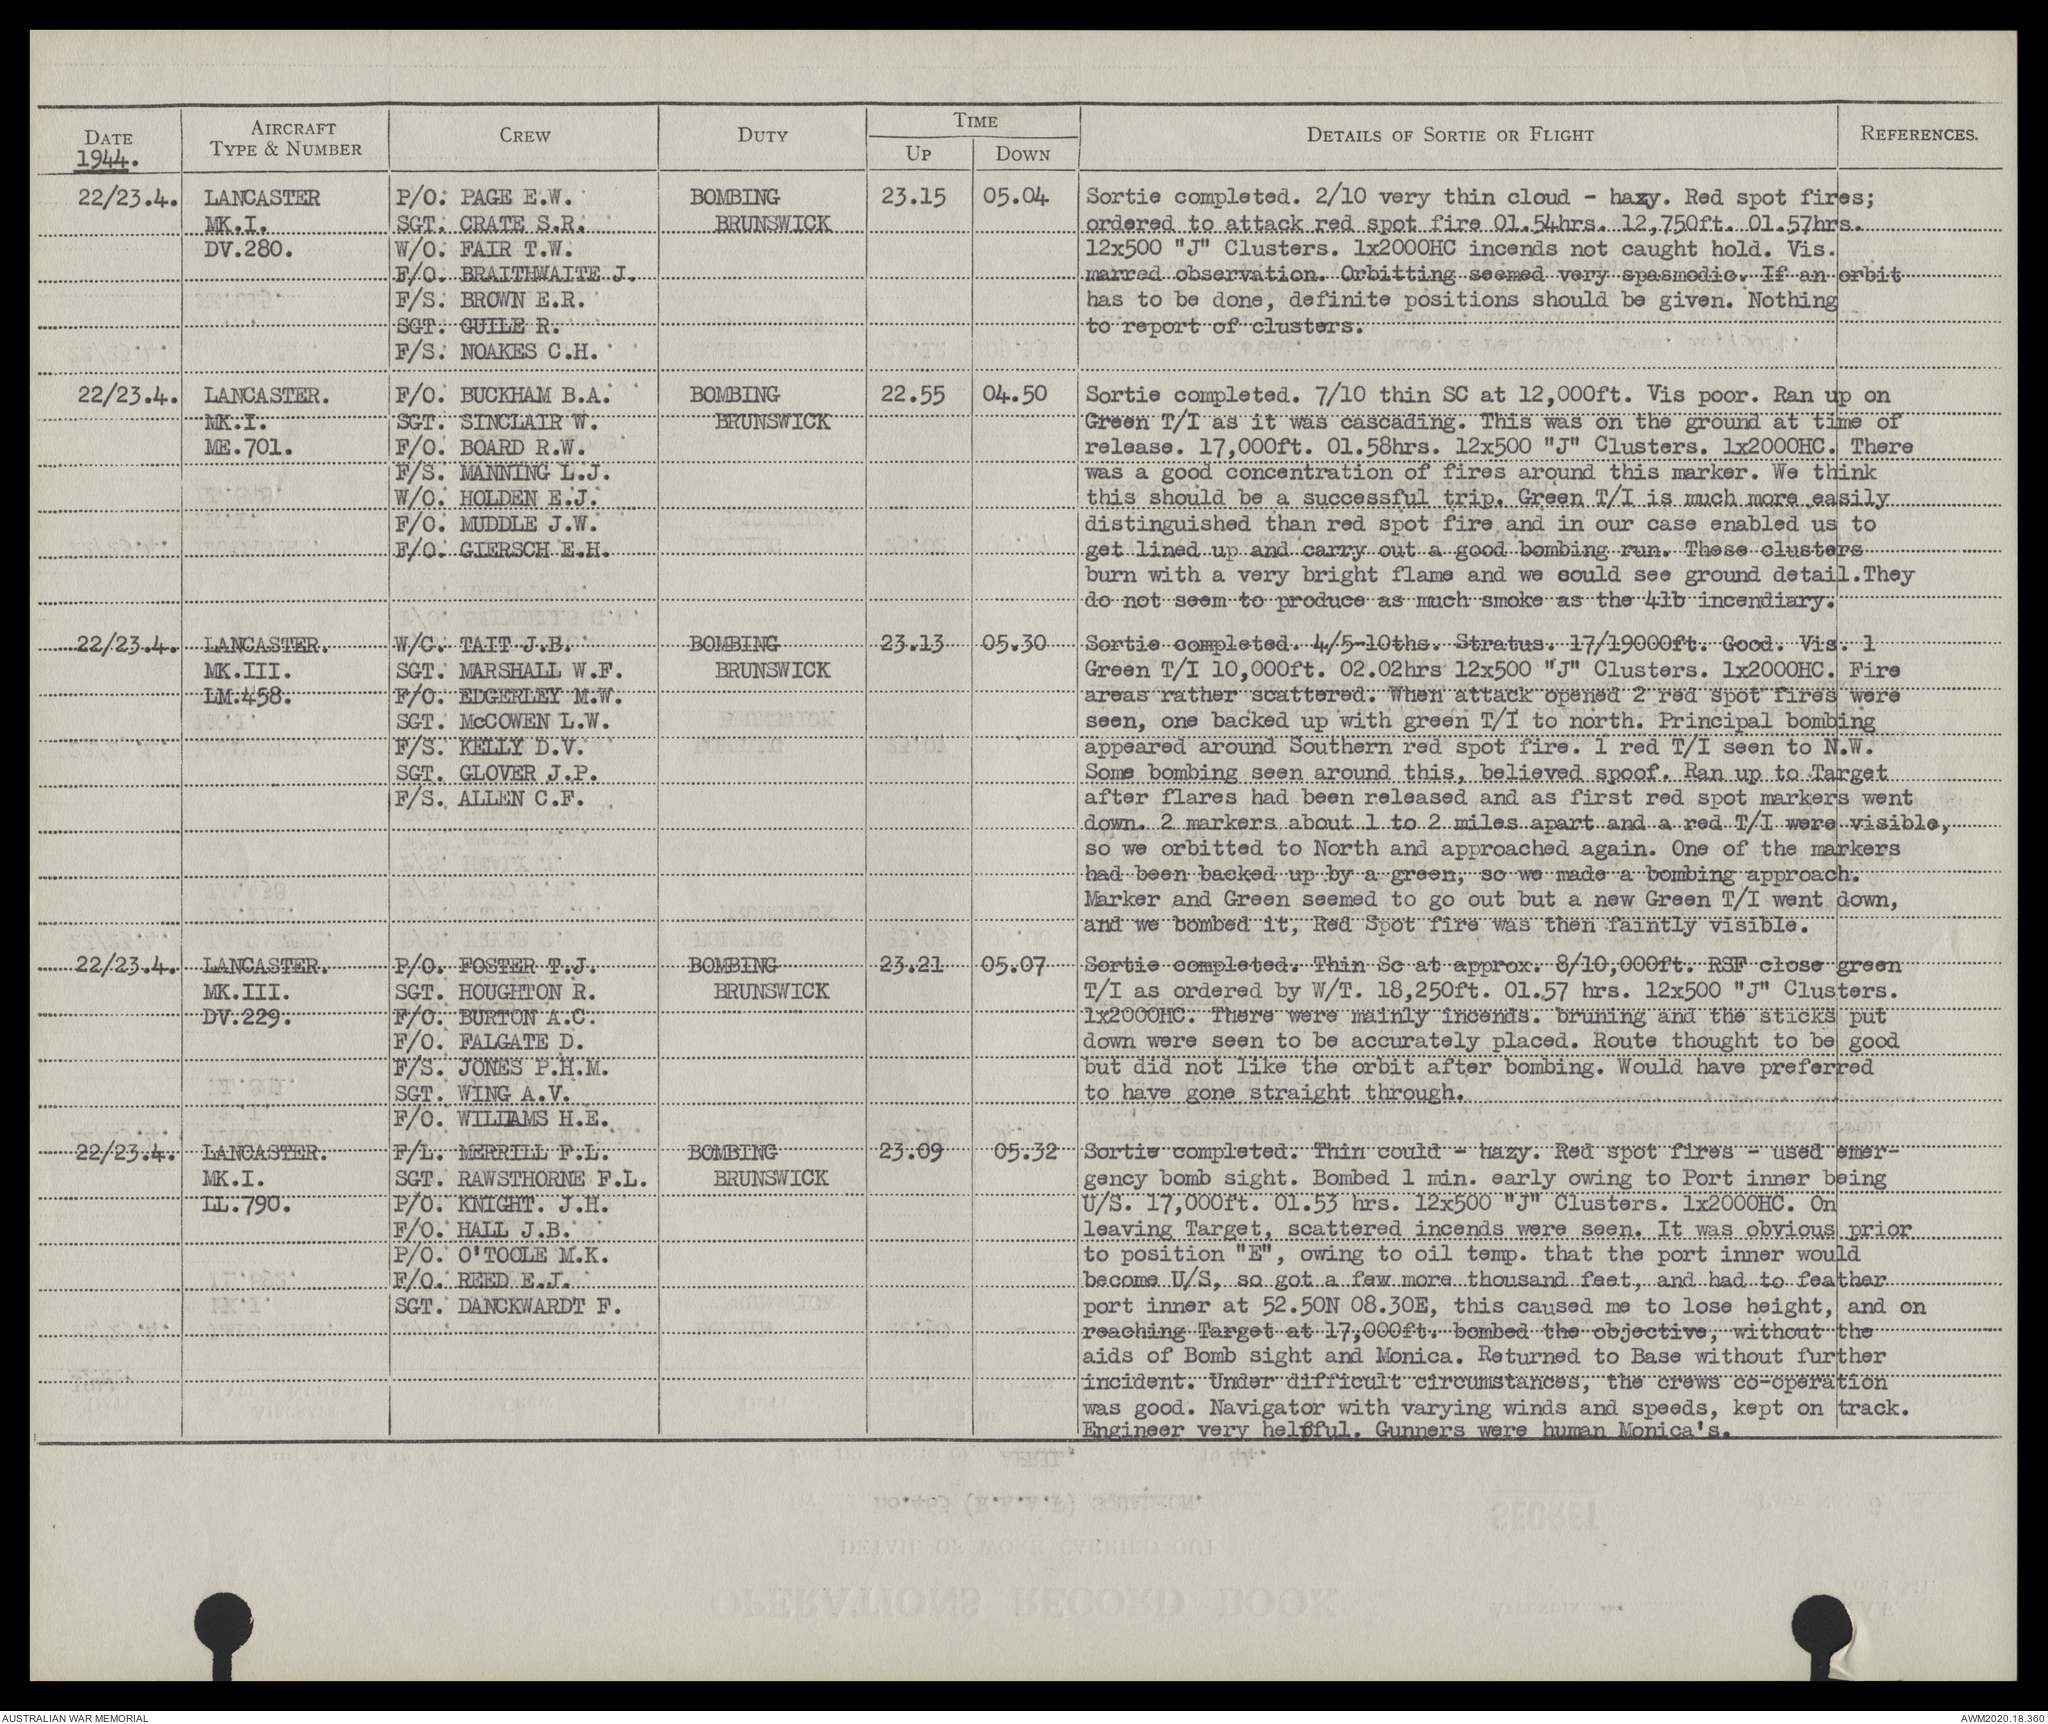 DATE
1944.
AIRCRAFT
TYPE & NUMBER
CREW
DUTY
TIME
UP
DOWN
DETAILS OF SORTIE OR FLIGHT
REFERENCES.
22/23.4. LANCASTER P/O. PAGE E.W. BOMBING 23.15 05.04 Sortie completed. 2/10 very thin cloud - hazy. Red spot fires;
MK.I. SGT. CRATE S.R. BRUNSWICK ordered to attack red spot fire 01.54hrs. 12,750ft. 01.57hrs.
DV.280. W/O. FAIR T.W. 12x500 "J" Clusters. 1x2000HC incends not caught hold. Vis.
F/O. BRAITHWAITE J. marred observation. Orbitting seemed very spasmodic. If an orbit
F/S. BROWN E.R. has to be done, definite positions should be given. Nothing
SGT. GUILE R. to report of clusters.
F/S. NOAKES C.H.
22/23.4. LANCASTER. F/O. BUCKHAM B.A. BOMBING 22.55 04.50 Sortie completed. 7/10 thin SC at 12,000ft. Vis poor. Ran up on
MK.I. SGT. SINCLAIR W. BRUNSWICK Green T/I as it was cascading. This was on the ground at time of
ME.701. F/O. BOARD R.W. release. 17,000ft. 01.58hrs. 12x500 "J" Clusters. 1x2000HC. There
F/S. MANNING L.J. was a good concentration of fires around this marker. We think
W/O. HOLDEN E.J. this should be a successful trip. Green T/I is much more easily
F/O. MUDDLE J.W. distinguished than red spot fire and in our case enabled us to
F/O. GIERSCH E.H. get lined up and carry out a good bombing run. These clusters
burn with a very bright flame and we could see ground detail.They
do not seem to produce as much smoke as the 4lb incendiary.
22/23.4. LANCASTER. W/C. TAIT J.B. BOMBING 23.13 05.30 Sortie completed. 4/5-10ths. Stratus. 17/19000ft. Good. Vis. 1
MK.III. SGT. MARSHALL W.F. BRUNSWICK Green T/I 10,000ft. 02.02hrs 12x500 "J" Clusters. 1x2000HC. Fire
LM.458. F/O. EDGERLEY M.W. areas rather scattered. When attack opened 2 red spot fires were
SGT. McCOWEN L.W. seen, one backed up with green T/I to north. Principal bombing
F/S. KELLY D.V. appeared around Southern red spot fire. 1 red T/I seen to N.W.
SGT. GLOVER J.P. Some bombing seen around this, believed spoof. Ran up to Target
F/S. ALLEN C.F. after flares had been released and as first red spot markers went
down. 2 markers about 1 to 2 miles apart and a red T/I were visible,
so we orbitted to North and approached again. One of the markers
had been backed up by a green, so we made a bombing approach.
Marker and Green seemed to go out but a new Green T/I went down,
and we bombed it, Red Spot fire was then faintly visible.
22/23.4. LANCASTER. P/O. FOSTER T.J. BOMBING 23.21 05.07 Sortie completed. Thin Sc at approx. 8/10,000ft. RSF close green
MK.III. SGT. HOUGHTON R. BRUNSWICK T/I as ordered by W/T. 18,250ft. 01.57 hrs. 12x500 "J" Clusters.
DV.229. F/O. BURTON A.C. 1x2000HC. There were mainly incends. bruning and the sticks put
F/O. FALGATE D. down were seen to be accurately placed. Route thought to be good
F/S. JONES P.H.M. but did not like the orbit after bombing. Would have preferred
SGT. WING A.V. to have gone straight through.
F/O. WILLIAMS H.E.
22/23.4. LANCASTER. F/L. MERRILL F.L. BOMBING 23.09 05.32 Sortie completed. Thin could - hazy. Red spot fires - used emer-
MK.I. SGT. RAWSTHORNE F.L. BRUNSWICK gency bomb sight. Bombed 1 min. early owing to Port inner being
LL.790. P/O. KNIGHT. J.H. U/S. 17,000ft. 01.53 hrs. 12x500 "J" Clusters. 1x2000HC. On
F/O. HALL J.B. leaving Target, scattered incends were seen. It was obvious prior
P/O. O'TOOLE M.K. to position "E", owing to oil temp. that the port inner would
F/O. REED E.J. become U/S, so got a few more thousand feet, and had to feather
SGT. DANCKWARDT F. port inner at 52.50N 08.30E, this caused me to lose height, and on
reaching Target at 17,000ft. bombed the objective, without the
aids of Bomb sight and Monica. Returned to Base without further
incident. Under difficult circumstances, the crews co-operation
was good. Navigator with varying winds and speeds, kept on track.
Engineer very helpful. Gunners were human Monica's.
AUSTRALIAN WAR MEMORIAL
AWM2020.18.360